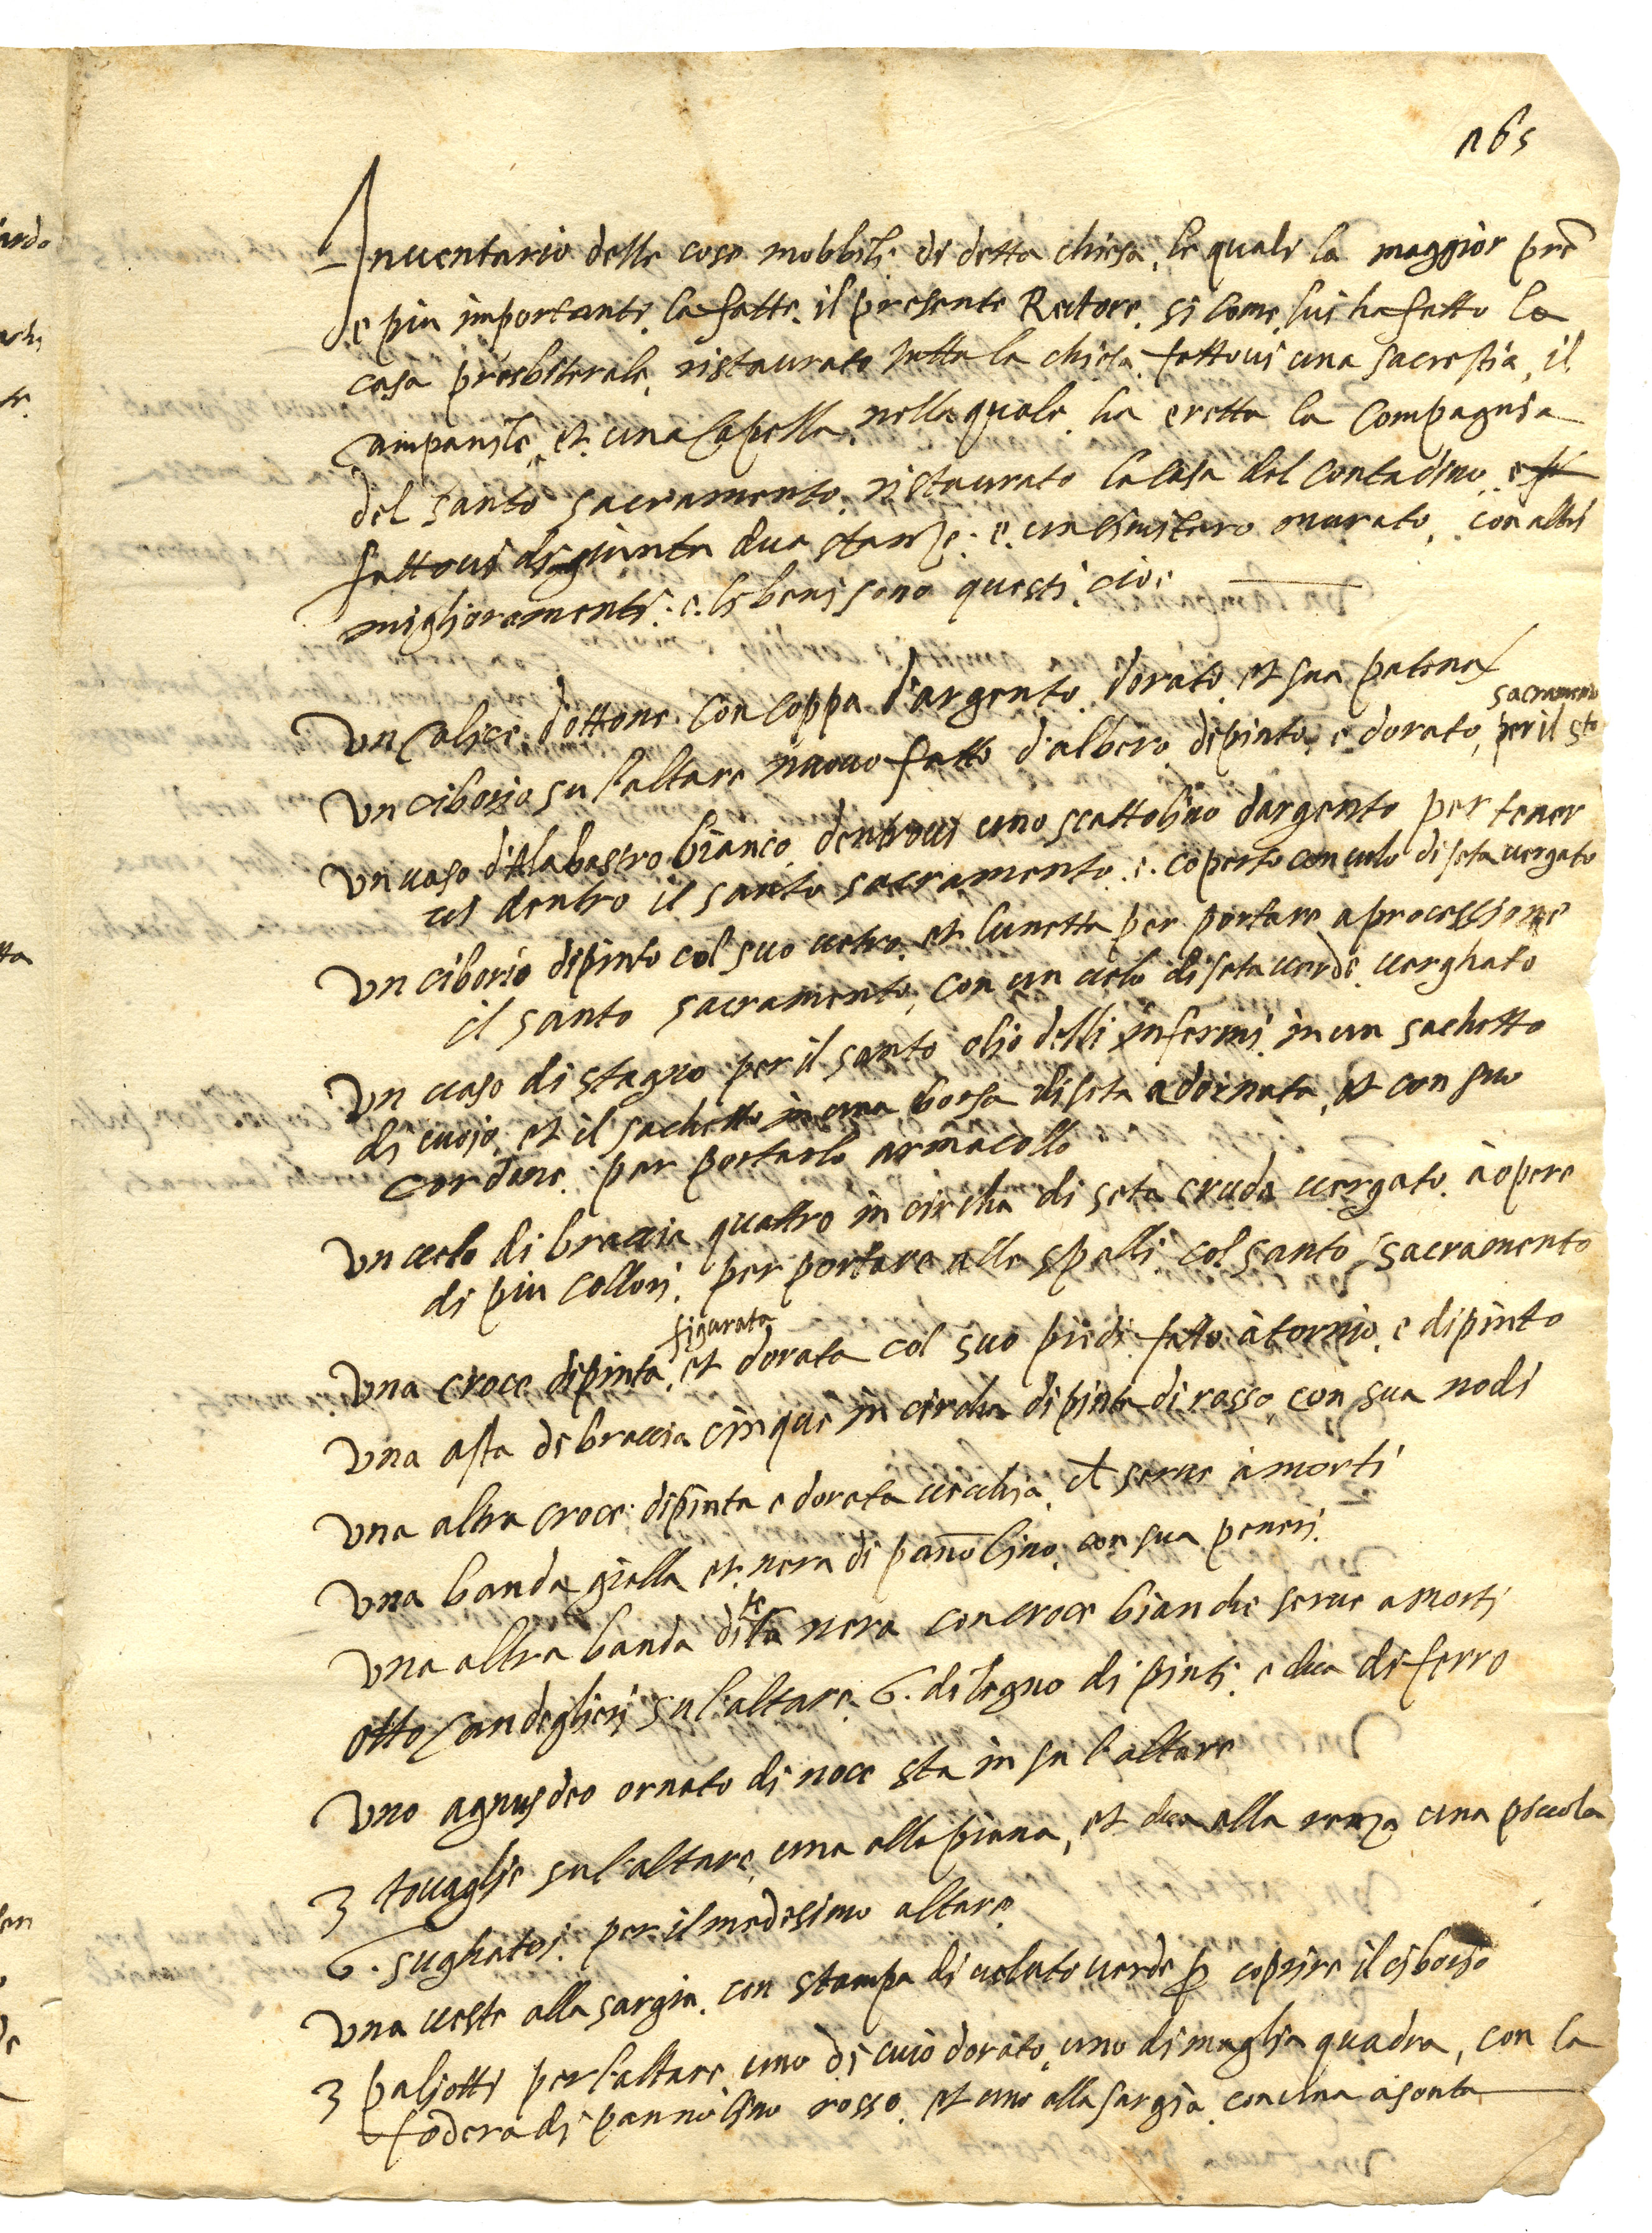 165
Inuentario delle cose mobbili di detta chiesa, le quali la maggior prē
e piu importanti la fatte il presente Rectore, si come lui ha fatto la
casa presbiterale, ristaurato tutta la chiesa, fattoui una sacrestia, il
campanile, et una Capella, nella quale ha eretta la Compagnia
del santo sacramento, ristaurato la casa del contadino, e
fattoui di giunta dua stanze, e un murato, con altri
miglioramenti: e li beni sono questi cioe
Un Calice d'ottone con coppa d'argento dorato, et sua patena
sacramento
Un ciborio su l'altare nuouo fatto d'albero dipinto e dorato, per il sto
Un uaso d'Alabastro bianco dentroui uno scattolino dargento per tener
ui dentro il santo sacramento, e coperto con uelo di seta uergato
Un ciborio dipinto col suo uetro et lunetta per portare a processione
il santo sacramento, con un uelo di seta uerde uerghato
Un uaso di stagno per il santo olio delli infermi in un sachetto
di cuoio, et il sachetto in una borsa di seta adornata, et con suo
cordone per portarlo armacollo
Un uelo di braccia quattro in circha di seta cruda uergato à opere
di piu collori, per portare alle spalli col santo sacramento
figurata
Una croce dipinta, et dorata col suo piedi fatto à tornio, e dipinto
Una asta di braccia cinque in circha dipinta di rosso, con sua nodi
Una altra croce dipinta e dorata uecchia, et serue à morti
Una banda gialla et nera di pañolino, con sua peneri
Una altra banda di ta nera con croce bianche serue a morti
Otto Candeglieri su l'altare, 6. di legno dipinti, e dua di ferro
Uno agnusdeo ornato di noce sta in su l'altare
3 touaglie sul'altare, una alla piana, et dua alla renza una piccola
6. sughatoi per il medesimo altare
Una ueste alla sargia, con stampa di ueluto uerde p coprire il ciborio
3 paliotti per l'altare, uno di cuio dorato, uno di maglia quadra, con la
fodera di pannolino rosso, et uno alla sargia, con una